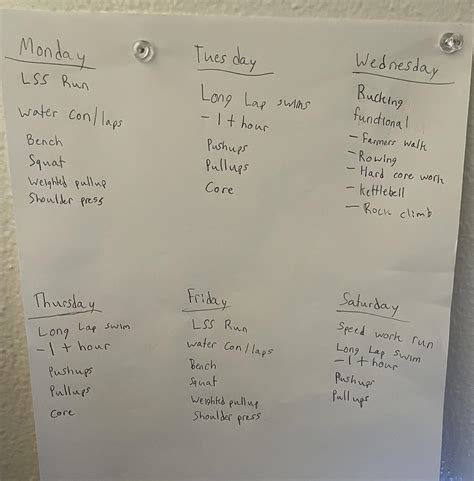 Monday
LSS Run
Water con/laps
Bench
Squat
Weighted pullup
Shoulder press
Tuesday
Long Lap swims
- 1 + hour
Pushups
Pullups
Core
Wednesday
Rucking
functional
- Farmers walk
- Rowing
- Hard core work
- Kettlebell
- Rock climb
Thursday
Long Lap swim
- 1 + hour
Pushups
Pullups
Core
Friday
LSS Run
Water con/laps
Bench
Squat
Weighted pullup
Shoulder press
Saturday
Speed work run
Long Lap swim
- 1 + hour
Pushups
Pullups